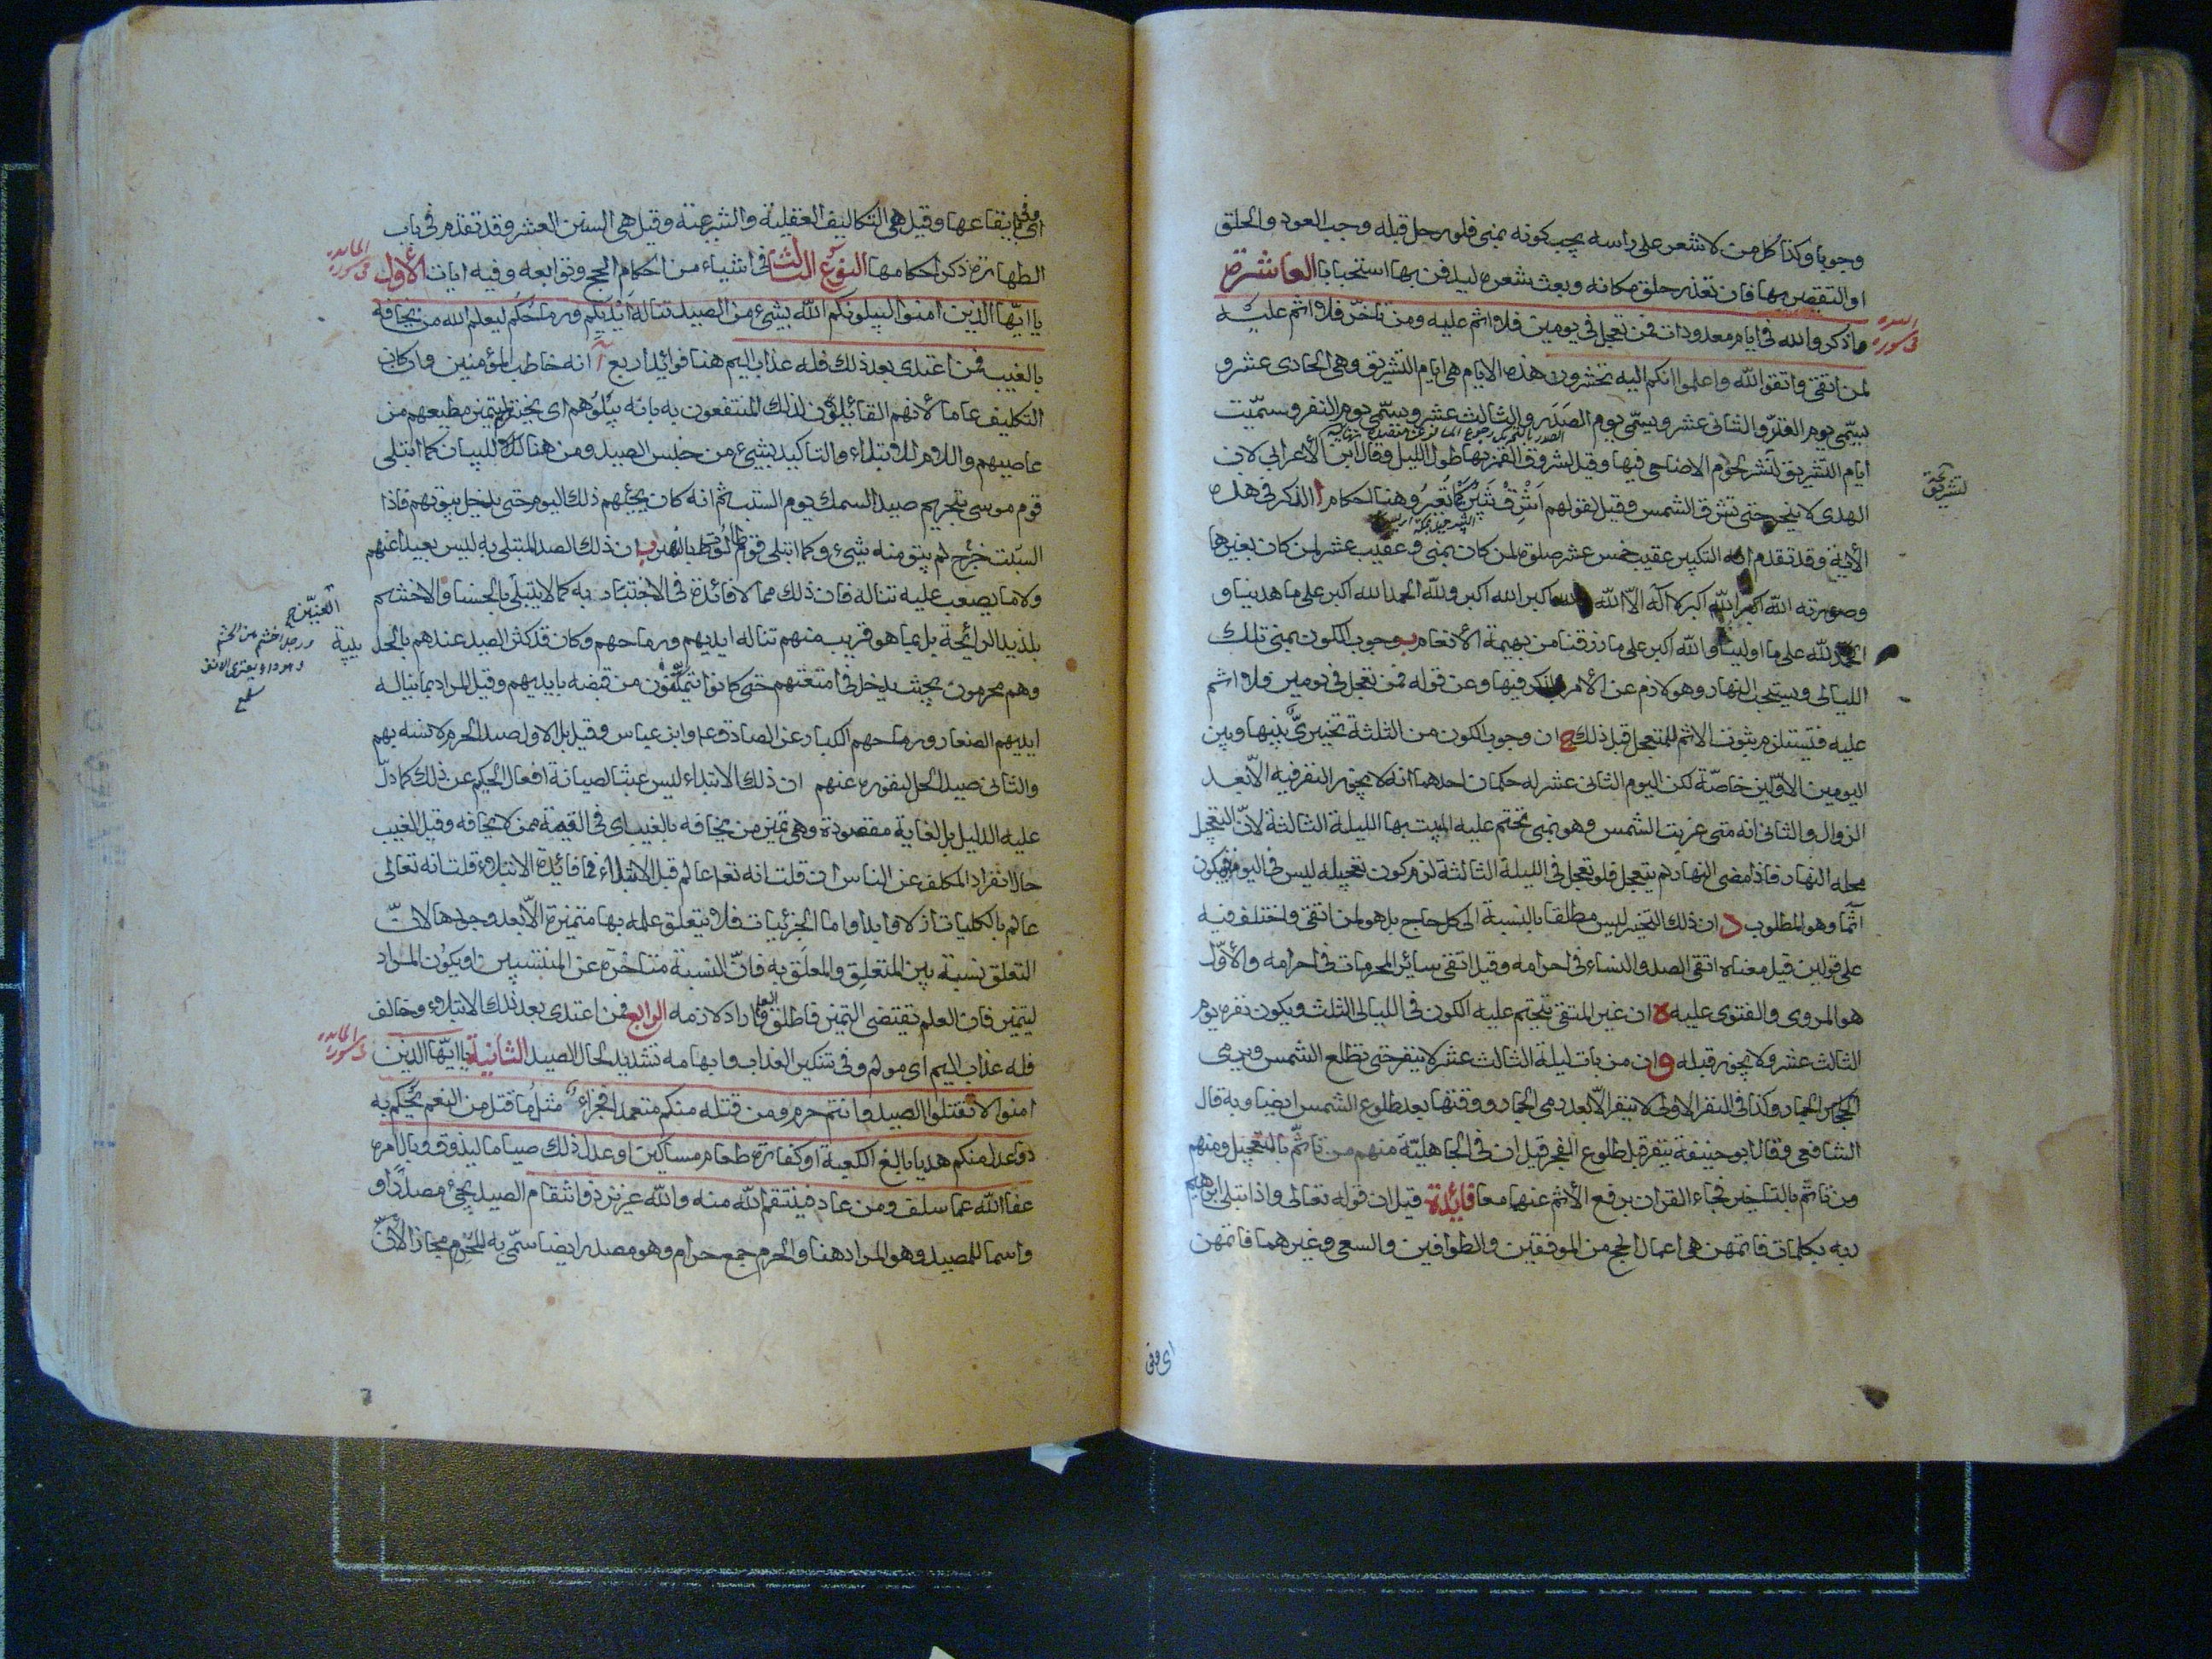 وجوبا وكذا كل من لا شعر على راسه يجب كونه بمنى فلو رحل قبله وجب العود والحلق
او التقصير بها فان تعذر حلق مكانه وبعث بشعره ليدفن بها استحبابا العاشرة
واذكروا الله في ايام معدودات فمن تعجل في يومين فلا اثم عليه ومن تاخر فلا اثم عليه
لمن اتقى واتقوا الله واعلموا انكم اليه تحشرون هذه الايام هي ايام التشريق وهي الحادى عشر و
يسمّى يوم القرّ والثانى عشر ويسمّى يوم الصَدَر والثالث عشر ويسمّى يوم النفر وسمّيت
ايام التشريق لنشر لحوم الاضاحى فيها وقيل لشروق القمر بها طول الليل وقال ابن الأعرابى لان
الهدى لا ينحر حتى تشرق الشمس وقيل لقولهم اَشْرِقْ ثَبِيْرُ كَما نُغِيرُ وهنا احكام ا الذكر في هذه
وقد تقدم انه التكبير عقيب خمس عشر صلوة لمن كان بمنى وعقيب عشر لمن كان بغيرها
وصورته الله اكبر الله اكبر لا آله الّا الله الله اكبر الله اكبر ولله الحمد الله اكبر على ما هدينا و
الحمد لله على ما اولينا والله اكبر على ما رزقنا من بهيمة الأنعام ب وجوب الكون بمنى تلك
الليالى ويستحب النهار وهو لازم عن الأمر بالذكر فيها وعن قوله فمن تعجل في يومين فلا اثم
عليه فيستلزم ثبوت الاثم للمتعجل قبل ذلك ج ان وجوب الكون من الثلثة تخييرىّ بينها وبين
اليومين الاوّلين خاصّة لكن اليوم الثانى عشر له حكمان احدهما انه لا يجوز النفر فيه الّا بعد
الزوال والثانى انه متى غربت الشمس وهو بمنى تحتم عليه المبيت بها الليلة الثالثة لانّ التعجيل
محله النهار فاذا مضى النهار لم يتعجل فلو تعجل في الليلة الثالثة لزم كون تعجيله ليس في اليومين فيكون
آثما وهو المطلوب د ان ذلك التخيير ليس مطلقا بالنسبة الى كل حاج بل هو لمن اتقى واختلف فيه
على قولين قيل معناه اتقى الصيد والنساء في احرامه وقيل اتقى سائر المحرمات في احرامه والأوّل
هو المروى والفتوى عليه ه ان غير المتقى يتحتم عليه الكون في الليالى الثلث ويكون نفره يوم
الثالث عشر ولا يجوز قبله و ان من بات ليلة الثالث عشر لا ينفر حتى تطلع الشمس ويرمى
الجمار وكذا في النفر الاولى لا ينفر الّا بعد رمى الجمار ووقتها بعد طلوع الشمس ايضا وبه قال
الشافعى وقال ابو حنيفة ينفر قبل طلوع الفجر قيل ان في الجاهليّة منهم من تاثّم بالتعجيل ومنهم
من تاثّم بالتاخير فجاء القران برفع الأثم عنهما معا فائدة قيل ان قوله تعالى واذ ابتلى ابراهيم
ربه بكلمات فاتمهن هى اعمال الحج من الموقفين والطوافين والسعى وغيرهما فاتمهن
في سورة
اى وفى
اى وفى ايقاعها وقيل هى التكاليف العقلية والشرعية وقيل هى السنن العشر وقد تقدم في باب
الطهارة ذكر احكامها النوع الثالث في اشياء من احكام الحج وتوابعه وفيه ايات الأولى
يا ايّها الذين امنوا ليبلونكم الله بشىء من الصيد تناله اَيْديكم ورماحُكُم ليعلم الله من يخافه
بالغيب فمن اعتدى بعد ذلك فله عذاب اليم هنا فوائد اربع آ انه خاطب المؤمنين وان كان
التكليف عاما لأنهم القائلون لذلك المنتفعون به بانه يَبْلُوهُم اى يختبرهم ليتميز مطيعهم من
عاصيهم واللام للابتداء والتاكيد بشىء من جنس الصيد ومن هنا للبيان كما ابتلى
قوم موسى بتحريم صيد السمك يوم السّبت ثم انه كان يجيئهم ذلك اليوم حتى يدخل بيوتهم فاذا
السّبت خرج لم يبق منه شىء وكما ابتلى قوم طالوت بالنهر ب ان ذلك الصيد المبتلى به ليس بعيدا عنهم
ولا ما يصعب عليه تناله فان ذلك مما لا فائدة في الاختبار به كما لا يبتلى بالحسنا والاخشم
بلذيذ الرائحة بل بما هو قريب منهم تناله ايديهم ورماحهم وكان قد كثر الصيد عندهم بالحديبية
وهم محرمون بحيث يدخل في امتعتهم حتى كانوا يتمكّنون من قبضه بايديهم وقيل المراد بما تناله
ايديهم الصغار ورماحهم الكبار عن الصادق ع وابن عباس وقيل بل الاول صيد الحرم لانسه بهم
والثانى صيد الحل لنفوره عنهم ان ذلك الابتلاء ليس عبثا لصيانة افعال الحكيم عن ذلك كما دلّ
عليه الدليل بل لغاية مقصودة وهى تميز من يخافه بالغيب اى في القيمة ممن لا يخافه وقيل الغيب
حال انفراد المكلف عن الناس ان قلت انه تعا عالم قبل الابتلاء فما فائدة الابتلاء قلت انه تعالى
عالم بالكليات ازلا وابدا واما الجزئيات فلا يتعلق علمه بها متميزة الّا بعد وجودها لانّ
التعلق نسبة بين المتعلِق والمعلَق به فانّ النسبة متاخرة عن المنتسبين او يكون المراد
ليتميز فان العلم يقتضى التميز فاطلق العلم واراد لازمه الرابع فمن اعتدى بعد ذلك الابتلاء وخالف
فله عذاب اليم اى مولم وفى تنكير العذاب وابهامه تشديد لحال الصيد الثانية يا ايّها الذين
امنوا لا تقتلوا الصيد وانتم حرم ومن قتله منكم متعمدا فجزاءٌ مثلُ ما قتل من النعم يَحْكم به
ذوا عدل منكم هديا بالغ الكعبة او كفارة طعام مساكين او عدل ذلك صياما ليذوق وبال امره
عفا الله عما سلف ومن عاد فينتقم الله منه والله عزيز ذو انتقام الصيد يجىء مصدرًا و
واسما للمصيد وهو المراد هنا والحرم جمع حرام وهو مصدر ايضا سمّى به المحرم مجازا لأنّ
في سورة المائدة
في سورة المائدة